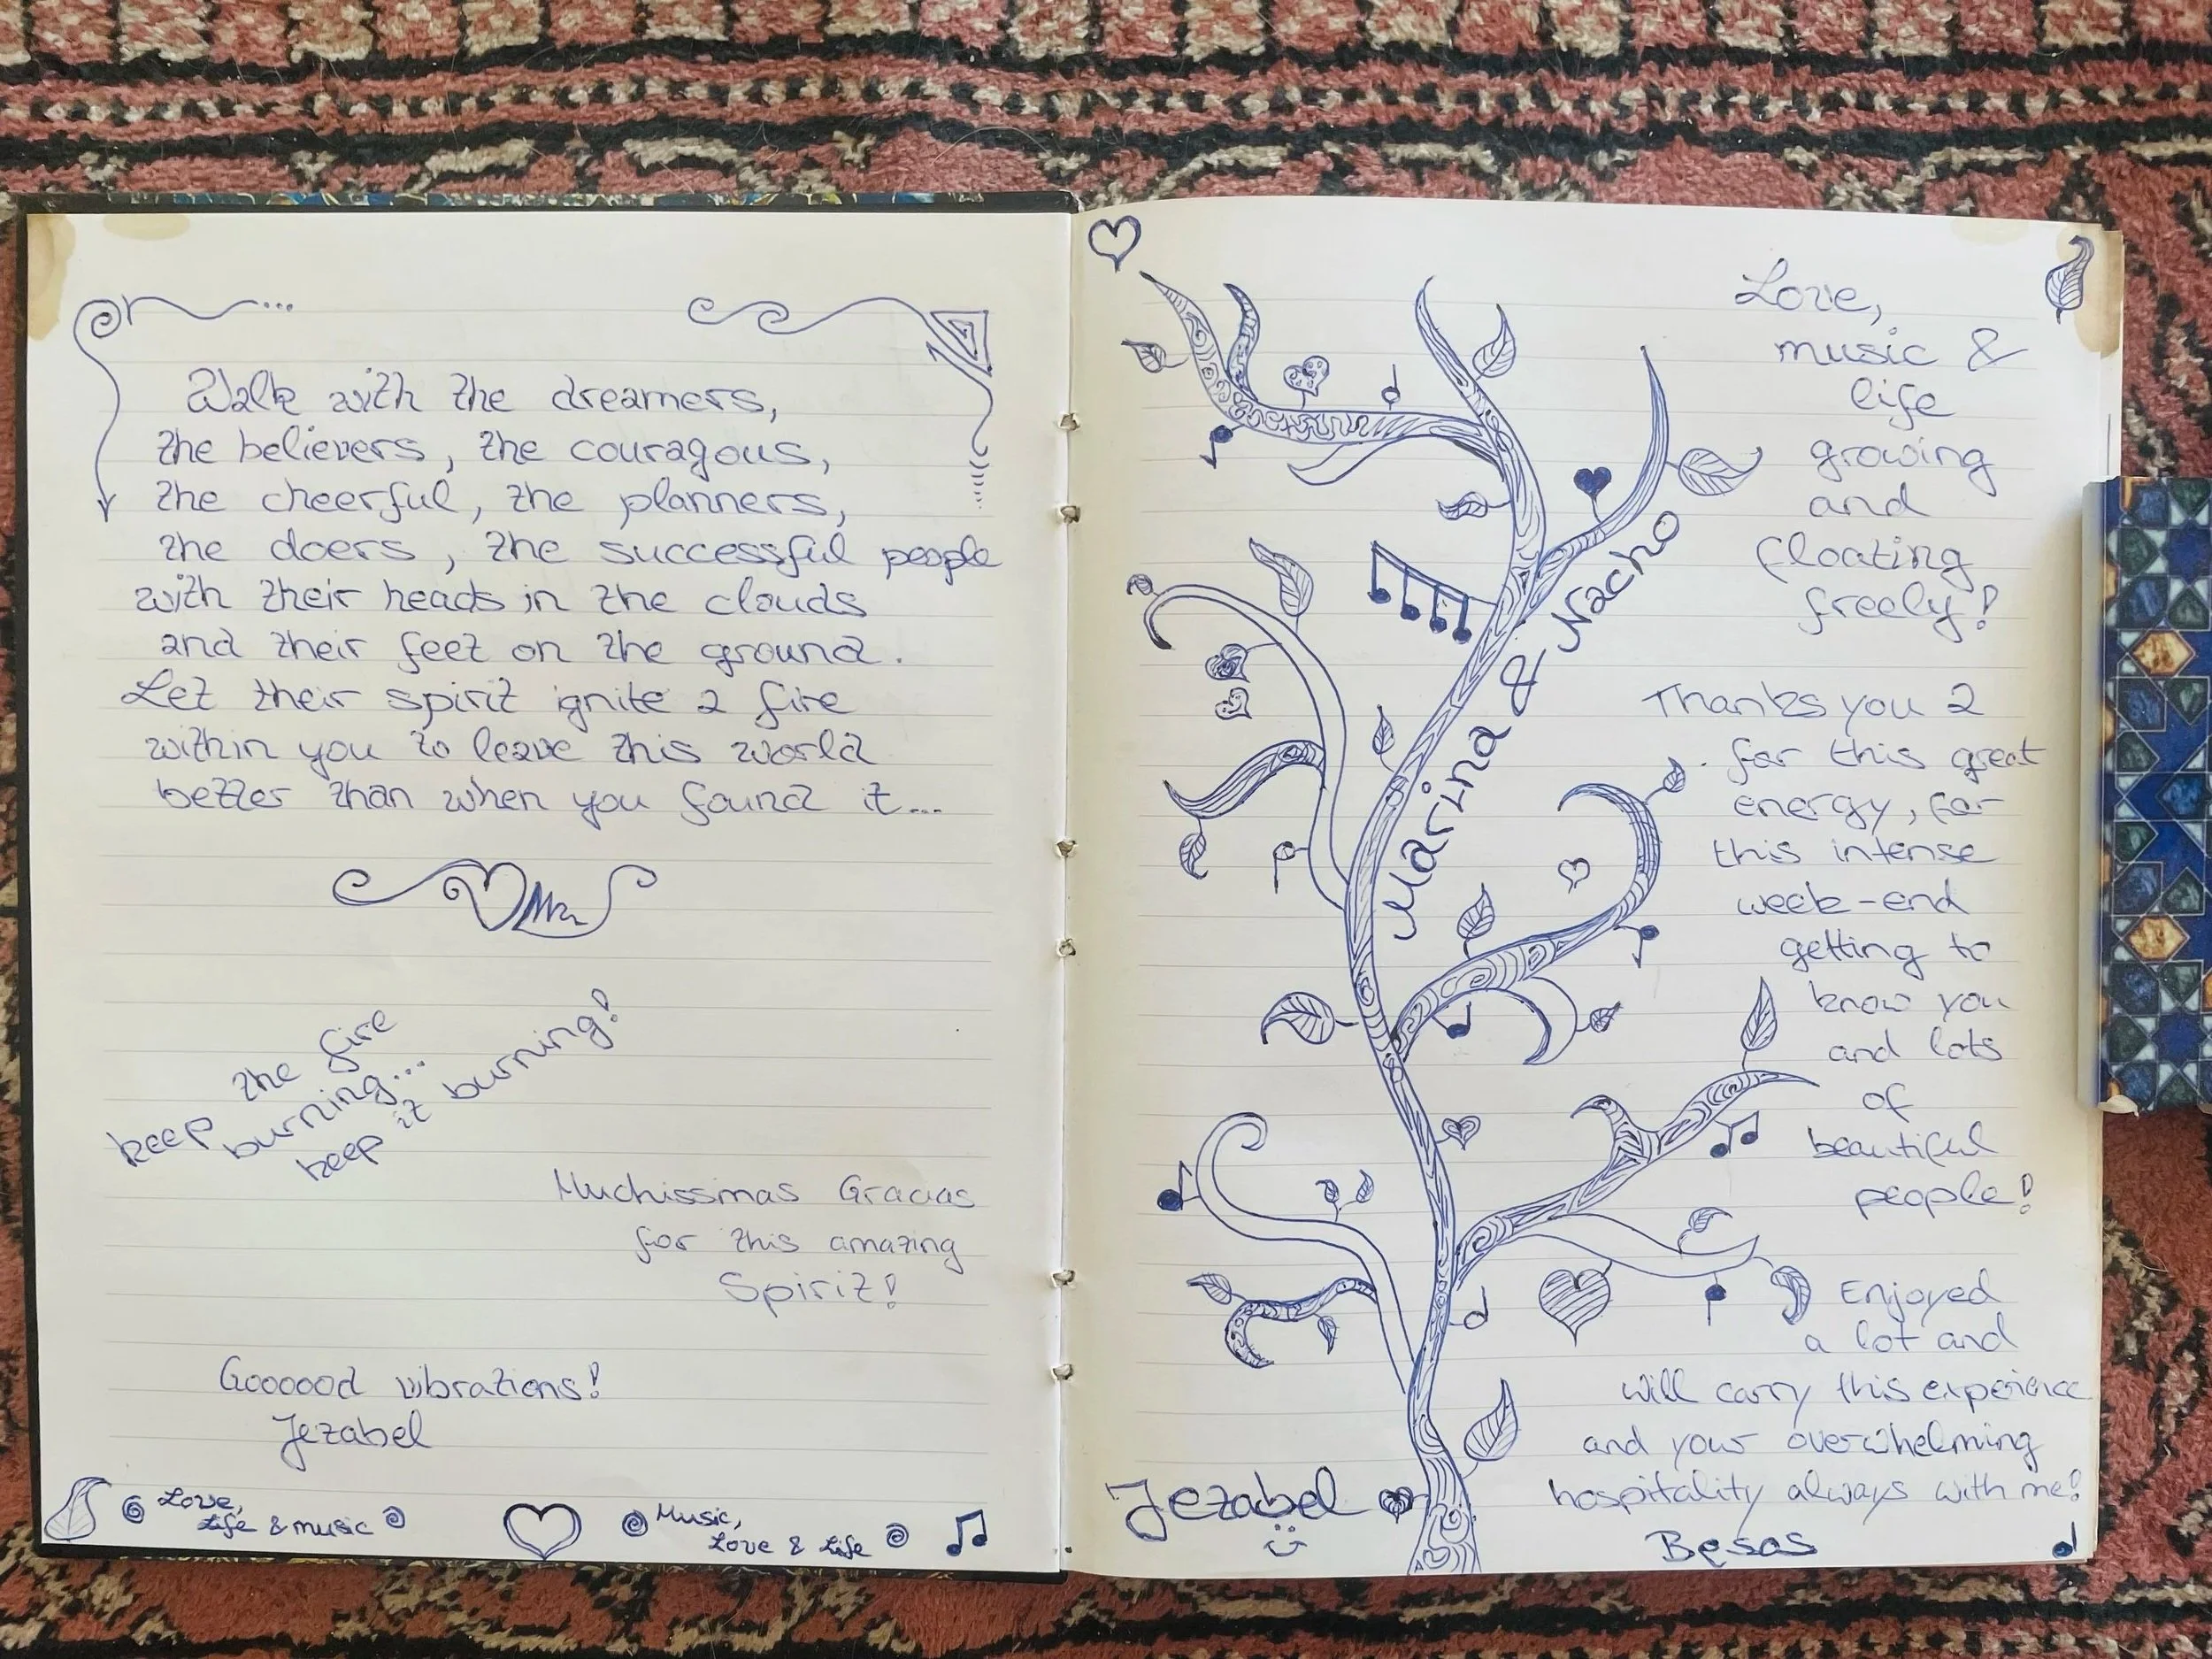 Walk with the dreamers,
the believers, the couragous,
the cheerful, the planners,
the doers, the successful people
with their heads in the clouds
and their feet on the ground.
Let their spirit ignite a fire
within you to leave this world
better than when you found it...
keep the fire
burning...
keep it burning!
Muchissimas Gracias
for this amazing
Spirit!
Goooood vibrations!
Jezabel
Love,
Life & music
Music,
Love & Life
Love,
music &
life
growing
and
floating
freely!
Marina & Nacho
Thanks you 2
for this great
energy, for
this intense
week-end
getting to
know you
and lots
of
beautiful
people!
Enjoyed
a lot and
will carry this experience
and your overwhelming
hospitality always with me!
Besos
Jezabel